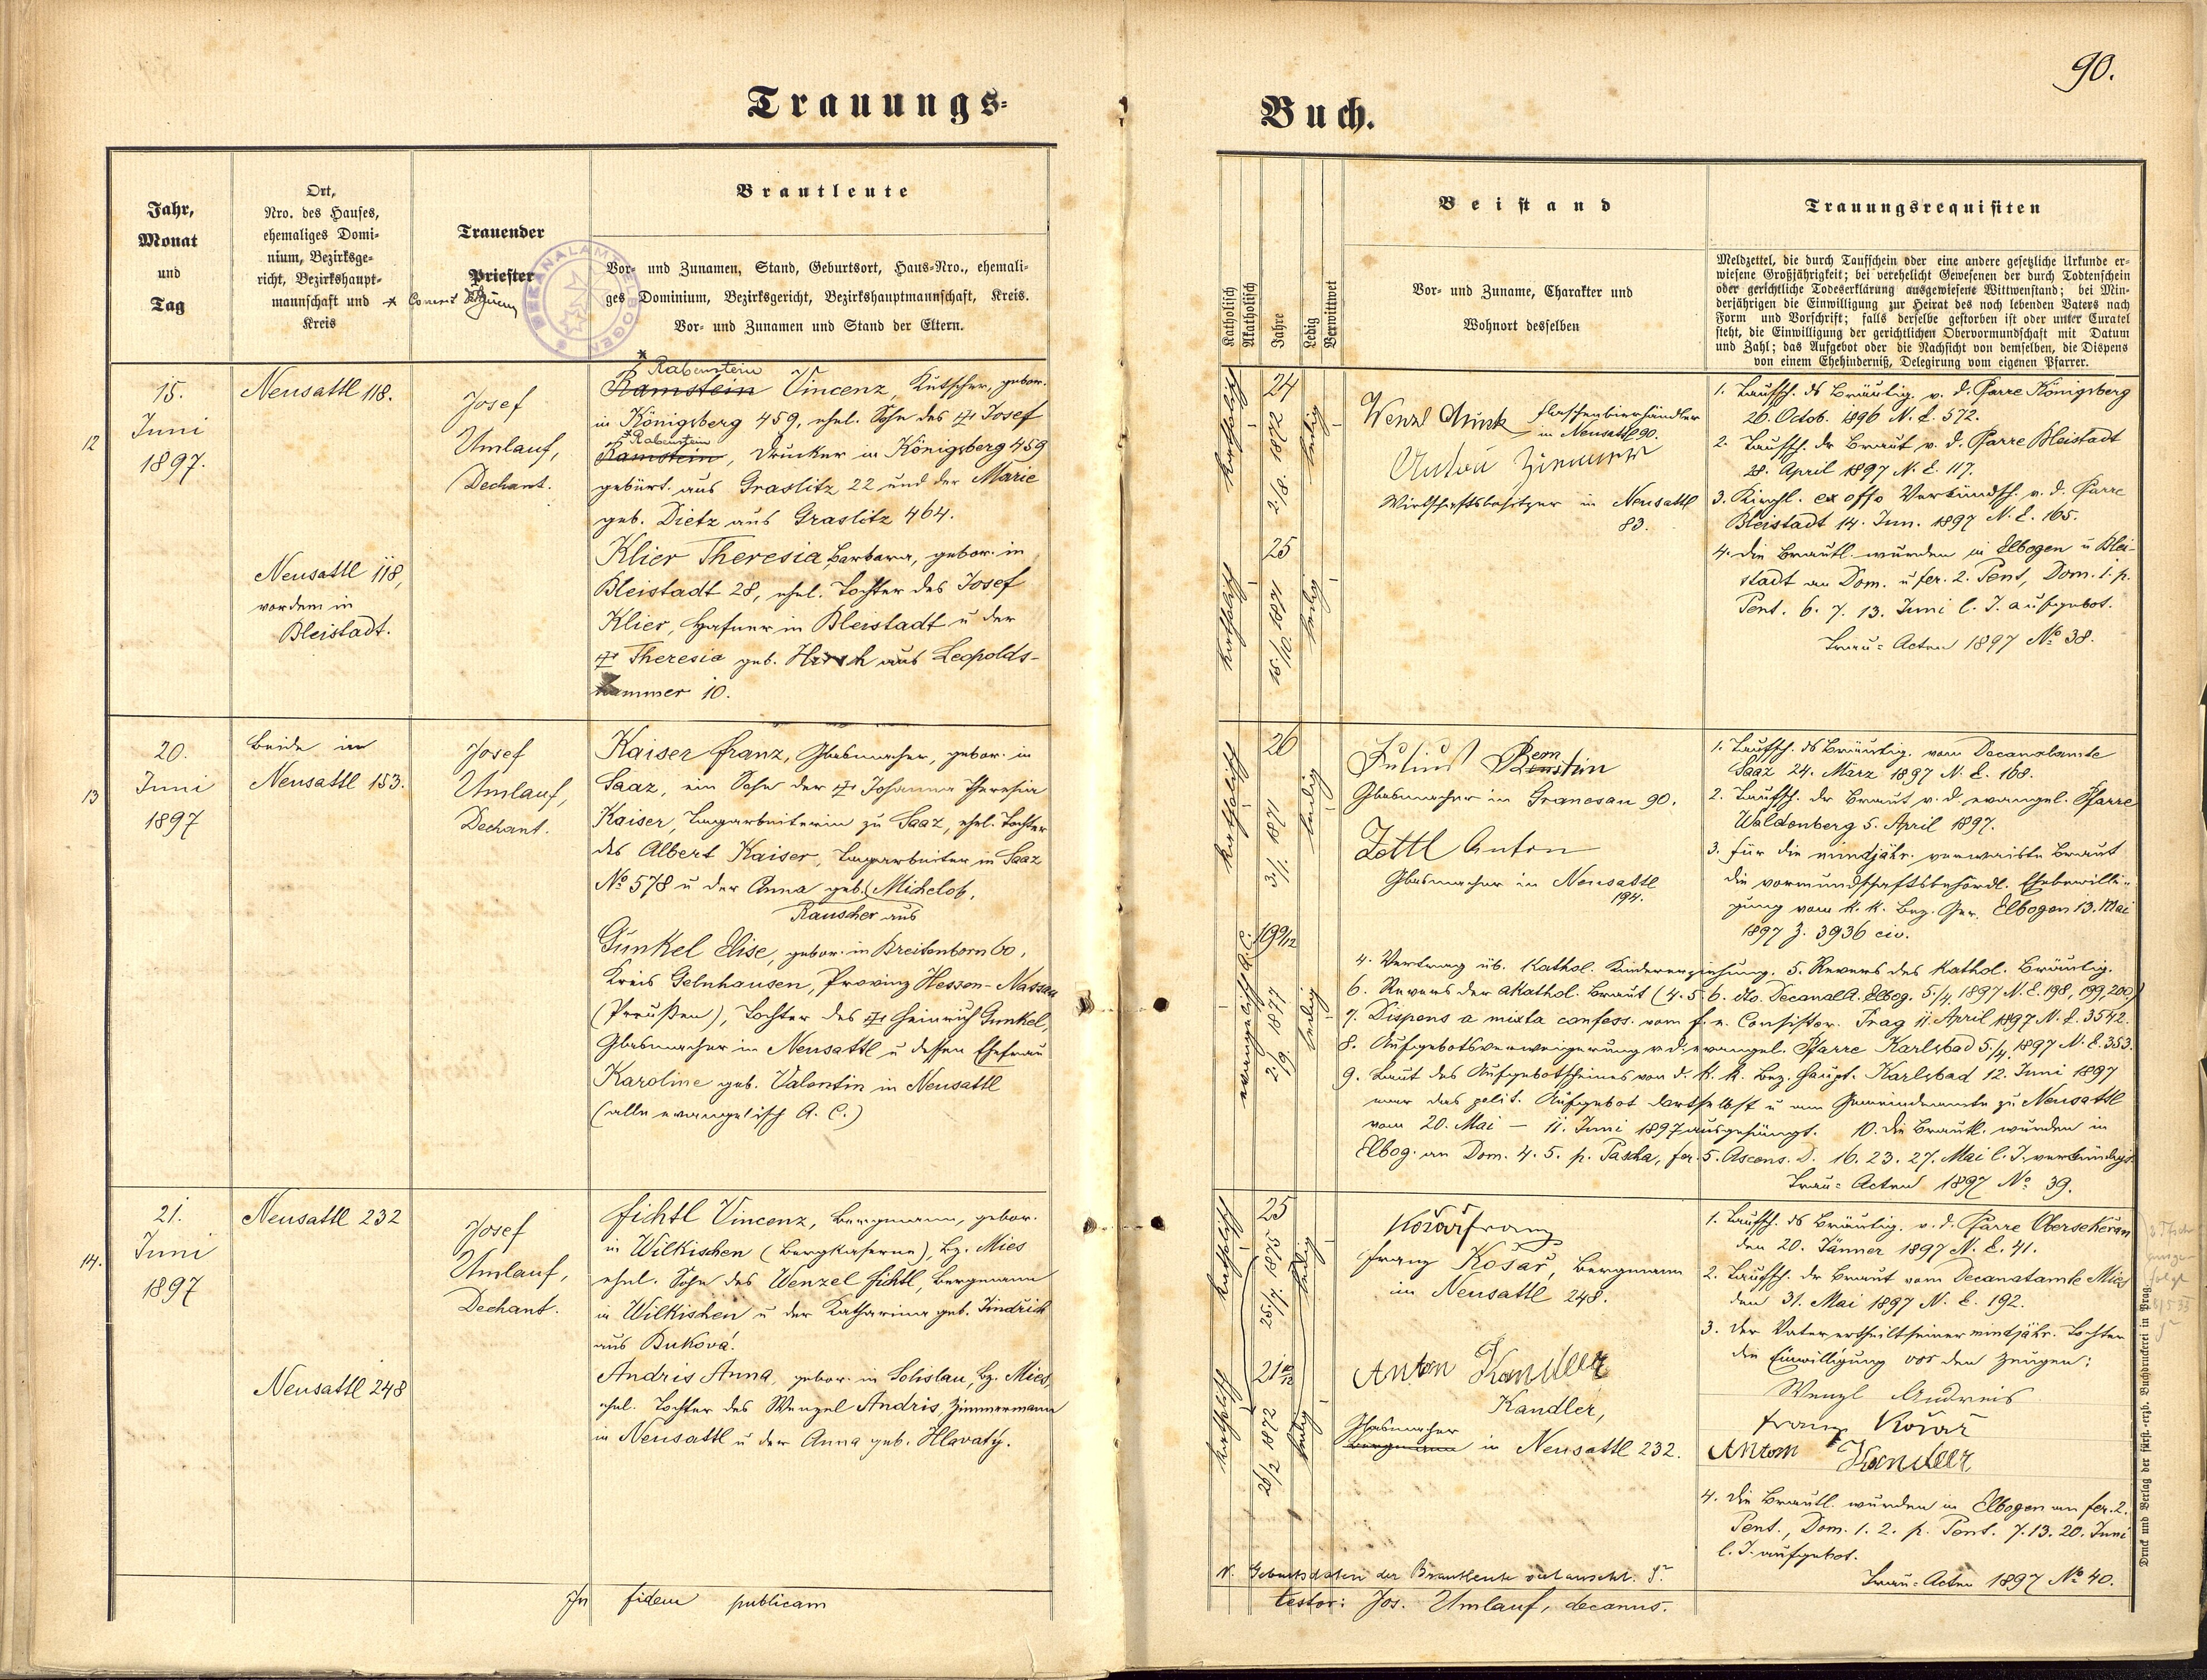 90.
Trauungs-
Buch.
Jahr,
Monat
und
Tag
Ort,
Nro. des Hauses,
ehemaliges Domi-
nium, Bezirksge-
richt, Bezirkshaupt-
mannschaft und
Kreis
Trauender
Priester
Brautleute
Vor- und Zunamen, Stand, Geburtsort, Haus-Nro., ehemali-
ges Dominium, Bezirksgericht, Bezirkshauptmannschaft, Kreis.
Vor- und Zunamen und Stand der Eltern.
12
15.
Juni
1897.
Neusattl 118.
Neusattl 118,
vordem in
Bleistadt.
Josef
Umlauf,
Dechant.
* Rabenstein
Ramstein Vincenz, Kutscher, gebor.
in Königsberg 459, ehel. Sohn des † Josef
* Rabenstein
Ramstein, Drucker in Königsberg 459
gebürt. aus Graslitz 22 und der Marie
geb. Dietz aus Graslitz 464.
Klier Theresia Barbara, gebor. in
Bleistadt 28, ehel. Tochter des Josef
Klier, Hafner in Bleistadt u der
† Theresia geb. Hirsch aus Leopolds-
hammer 10.
13
20.
Juni
1897
Beide in
Neusattl 153.
Josef
Umlauf,
Dechant.
Kaiser Franz, Glasmacher, gebor. in
Saaz, ein Sohn der † Johanna Theresia
Kaiser, Tagarbeiterin zu Saaz, ehel. Tochter
des Albert Kaiser, Tagarbeiter in Saaz
No 578 u der Anna geb. Michelob.
Rauscher aus
Günkel Elise, gebor. in Breitenborn 60,
Kreis Gelnhausen, Provinz Hessen-Nassau
(Preußen), Tochter des † Heinrich Gunkel,
Glasmacher in Neusattl u dessen Ehefrau
Karoline geb. Valentin in Neusattl
(alle evangelisch A. C.)
14.
21.
Juni
1897
Neusattl 232
Neusattl 248
Josef
Umlauf,
Dechant.
Fichtl Vincenz, Bergmann, gebor.
in Wilkischen (Bergkaserne), Bz. Mies
ehel. Sohn des Wenzel Fichtl, Bergmann
in Wilkischen u der Katharina geb. Jindřich
aus Buková.
Andris Anna, gebor. in Solislau, Bz. Mies,
ehel. Tochter des Wenzel Andris, Zimmermann
in Neusattl u der Anna geb. Hlavatý.
In fidem publicam
Katholisch
Akatholisch
Jahre
Ledig
Verwittwet
Beistand
Vor- und Zuname, Charakter und
Wohnort desselben
Trauungsrequisiten
Meldzettel, die durch Taufschein oder eine andere gesetzliche Urkunde er-
wiesene Großjährigkeit; bei verehelicht Gewesenen der durch Todtenschein
oder gerichtliche Todeserklärung ausgewiesene Wittwenstand; bei Min-
derjährigen die Einwilligung zur Heirat des noch lebenden Vaters nach
Form und Vorschrift; falls derselbe gestorben ist oder unter Curatel
steht, die Einwilligung der gerichtlichen Obervormundschaft mit Datum
und Zahl; das Aufgebot oder die Nachsicht von demselben, die Dispens
von einem Ehehinderniß, Delegirung vom eigenen Pfarrer.
katholisch
24
2./8. 1872
ledig
katholisch
25
15./10. 1871
ledig
Wenzl Munk Flaschenbierhändler
in Neusattl 90.
Anton Zimmer
Wirtschaftsbesitzer in Neusattl
83.
1. Taufsch. ds Bräutig. v. d. Pfarre Königsberg
26. Octob. 1896 N. E. 572.
2. Taufsch. dr Braut v. d. Pfarre Bleistadt
28. April 1897 N. E. 117.
3. Kirchl. ex offo Verkündsch. v. d. Pfarre
Bleistadt 14. Jun. 1897 N. E. 165.
4. die Brautl. wurden in Elbogen u Blei-
stadt an Dom. u fer. 2. Pent, Dom. 1. p.
Pent. 6. 7. 13. Juni l. J. aufgebot.
Trau-Acten 1897 No 38.
katholisch
26
3./1. 1871
ledig
evangelisch A. C.
19 9/12
2./9. 1877
ledig
Julius Bernstein
Glasmacher in Granesau 90.
Zettl Anton
Glasmacher in Neusattl
194.
1. Taufsch. ds Bräutig. vom Decanalamte
Saaz 24. März 1897 N. E. 168.
2. Taufsch. dr Braut v. d. evangel. Pfarre
Waldenberg 5. April 1897.
3. Für die mindjähr. verwaiste Braut
die vormundschaftsbehördl. Ehebewilli-
gung vom k. k. Bez. Ger. Elbogen 13. Mai
1897 Z. 3936 civ.
4. Vertrag üb. kathol. Kindererziehung. 5. Revers des kathol. Bräutig.
6. Revers der akathol. Braut (4. 5. 6. dto. DecanalA. Elbog. 5./4. 1897 N. E. 198, 199, 200)
7. Dispens a mixta confess. vom f. e. Consistor. Prag 11. April 1897 N. E. 3542.
8. Aufgebotsverweigerung v. d. evangel. Pfarre Karlsbad 5./4. 1897 N. E. 353.
9. Laut des Aufgebotscheines von d. k. k. Bez. Haupt. Karlsbad 12. Juni 1897
war das polit. Aufgebot dortselbst u am Gemeindeamte zu Neusattl
vom 20. Mai — 11. Juni 1897 ausgehängt. 10. die Brautl. wurden in
Elbog. an Dom. 4. 5. p. Pascha, fer. 5. Ascens. D. 16. 23. 27. Mai l. J. verkündigt.
Trau-Acten 1897 No 39.
katholisch
25
25./7. 1875
ledig
katholisch
21
26/2 1872
ledig
Košař Franz
Franz Košař, Bergmann
in Neusattl 248.
Anton Kandler
Kandler,
Glasmacher
Bergmann in Neusattl 232.
1. Taufsch. ds Bräutig. v. d. Pfarre Obersekeran
den 20. Jänner 1897 N. E. 41.
2. Taufsch. dr Braut vom Decanatamte Mies
den 31. Mai 1897 N. E. 192.
3. Der Vater ertheilt seiner mindjähr. Tochter
die Einwilligung vor den Zeugen:
Wenzl Andreis
Franz Košař
Anton Kandler
4. Die Brautl. wurden in Elbogen an fer. 2.
Pent., Dom. 1. 2. p. Pent. 7. 13. 20. Juni
l. J. aufgebot.
Trau-Acten 1897 No 40.
N. Geburtsdaten der Brautleute
testor: Jos. Umlauf, decanus.
Druck und Verlag der fürst.-erzb. Buchdruckerei in Prag.